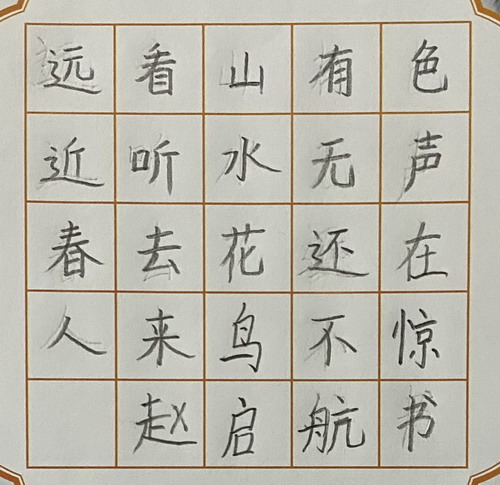 远看山有色
近听水无声
春去花还在
人来鸟不惊
赵启航书